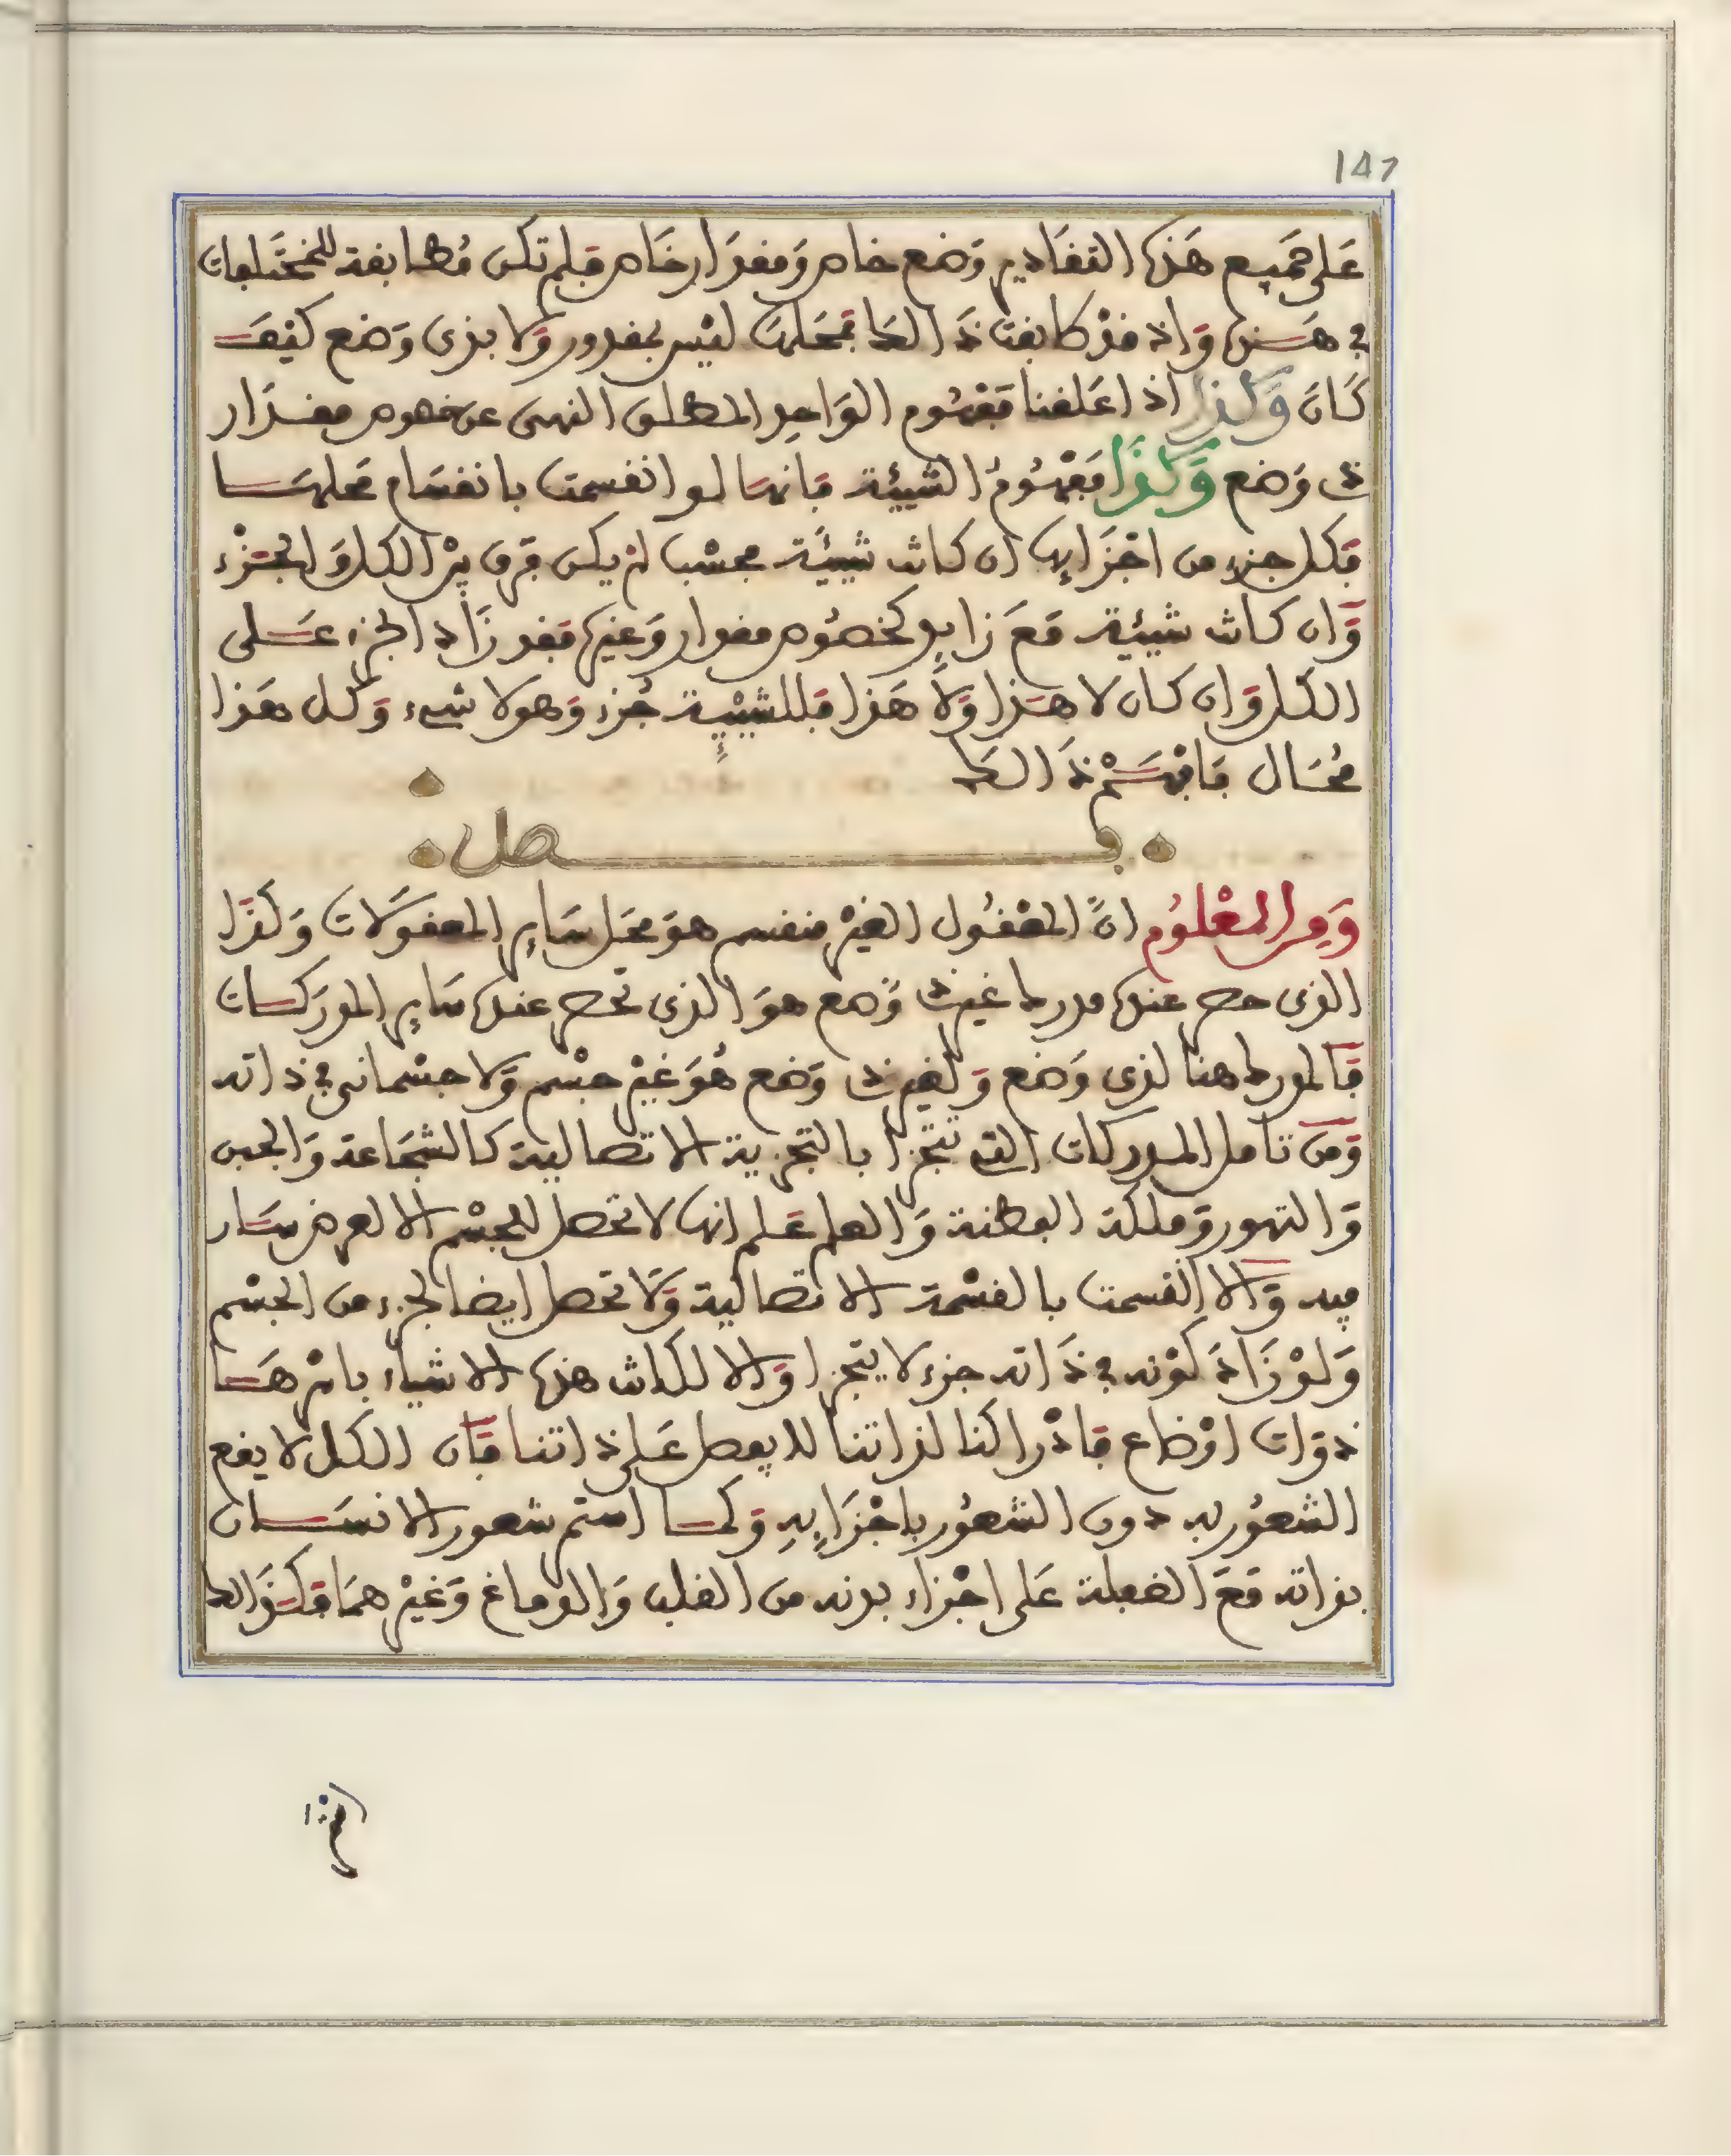 147
على جميع هذه التقادير وضع خاص ومقدار خاص فلم تكن مطابقة للمختلفات
في هذين وإذ قد طابقت ذالك فمحلها ليس بمقدور ولا بذى وضع كيف
كان وكذا اذا عقلنا مفهوم الواحد المطلق النهى عن خصوص مقدار
ذى وضع وكذا مفهوم الشيئية فانها لو انقسمت بانقسام محلها
فكل جزء من اجزايها ان كانت شيئية فحسب لم يكن فرق بين الكل والجزء
وان كانت شيئية مع زايد كخصوص مقدار وغيره فقد زاد الجزء على
الكل وان كان لا هذا ولا هذا فللشيئية جزء وهو لا شىء وكل هذا
محال فافهم ذالك
فصل
ومن المعلوم ان المعقول الغير منقسم هو محل ساير المعقولات وكذا
الذى حضر عنده مدرك غير ذى وضع هو الذى تحضر عنده ساير المدركات
فالمدرك هنا لذى وضع ولغير ذى وضع هو غير جسم ولا جسمانى في ذاته
ومن تامل المدركات التى تتجزا بالتجزية الاتصالية كالشجاعة والجبن
والتهور وملكة الفطنة والعلم علم انها لا تحصل للجسم الا لعرض سار
فيه والا انقسمت بالقسمة الاتصالية ولا تحصل ايضا لجزء من الجسم
ولو زاد كونه في ذاته جزء لا يتجزا والا لكانت هذه الاشياء باسرها
ذوات اوضاع فادراكنا لذاتنا لا يفضل على ذاتنا فان الكل لا يقع
الشعور به دون الشعور باجزايه وكما استمر شعور الانسان
بذاته مع الغفلة على اجزاء بدنه من القلب والدماغ وغيرهما فكذالك